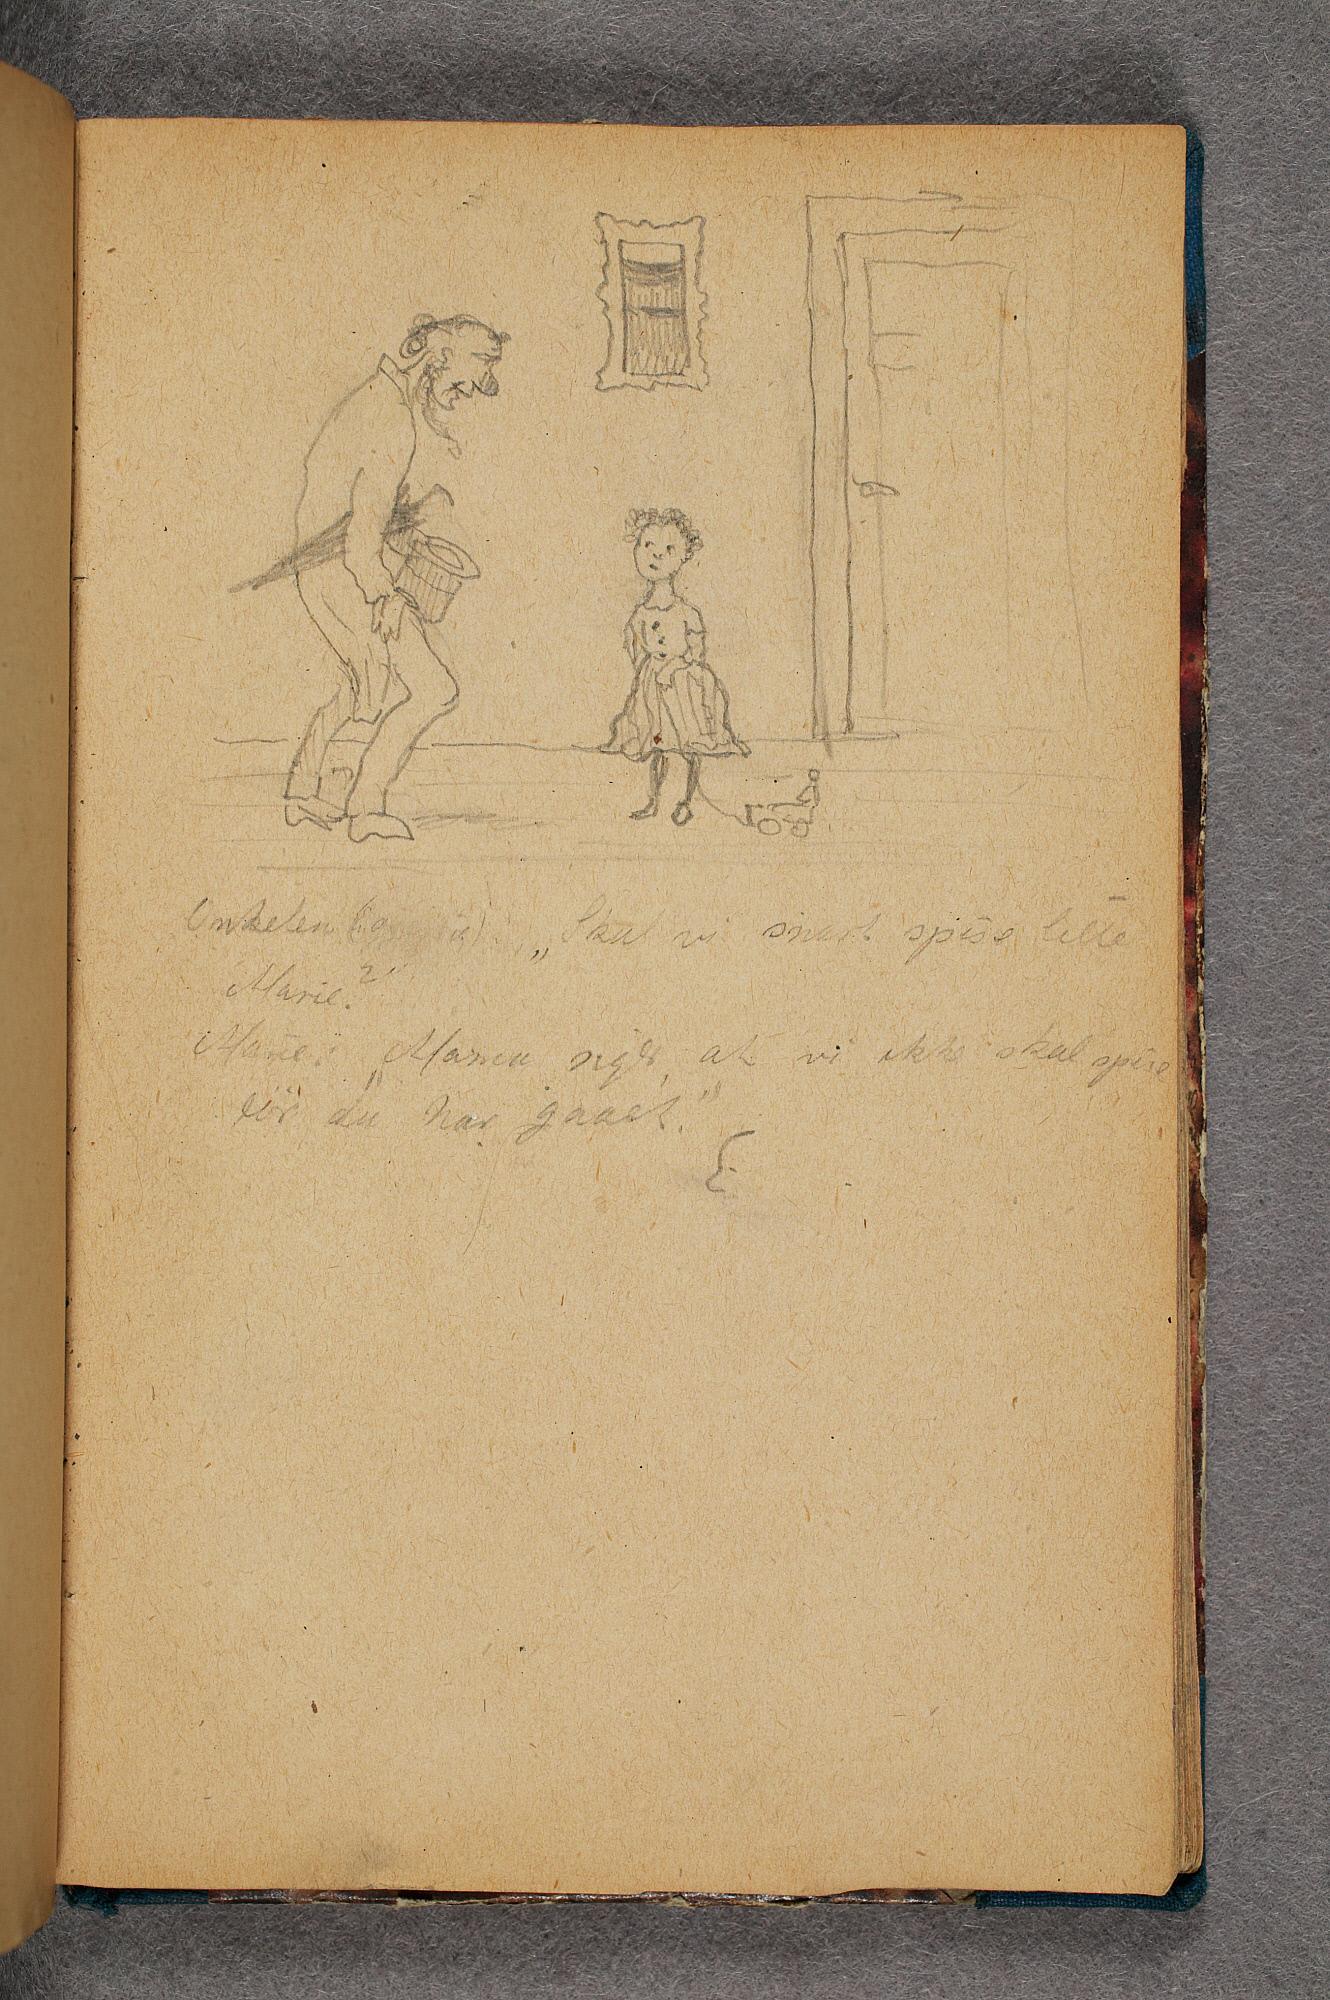 Onkelen „Skal vi snart spise lille
Marie?"
Marie: „Mama siger, at vi ikke skal spise
før du har gaaet."
E